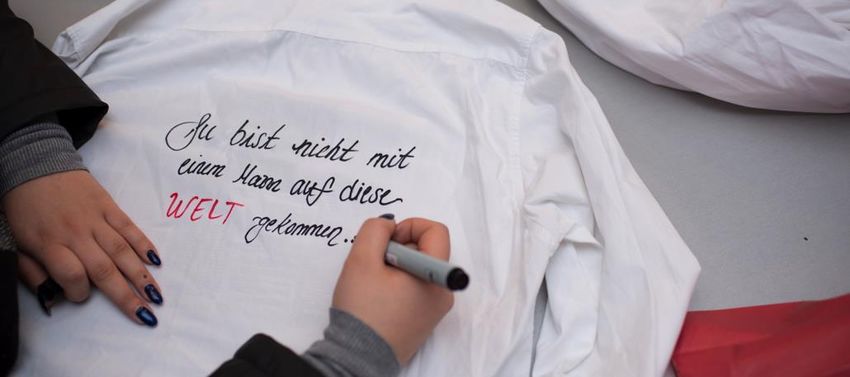 Du bist nicht mit
einem Mann auf diese
WELT gekommen..